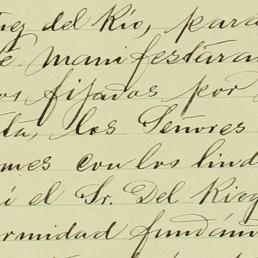 del Río, para
manifestara
os fijados por
ta, los Señores
mes con los lind
í el Sr. Del Rieg
ormidad fundán